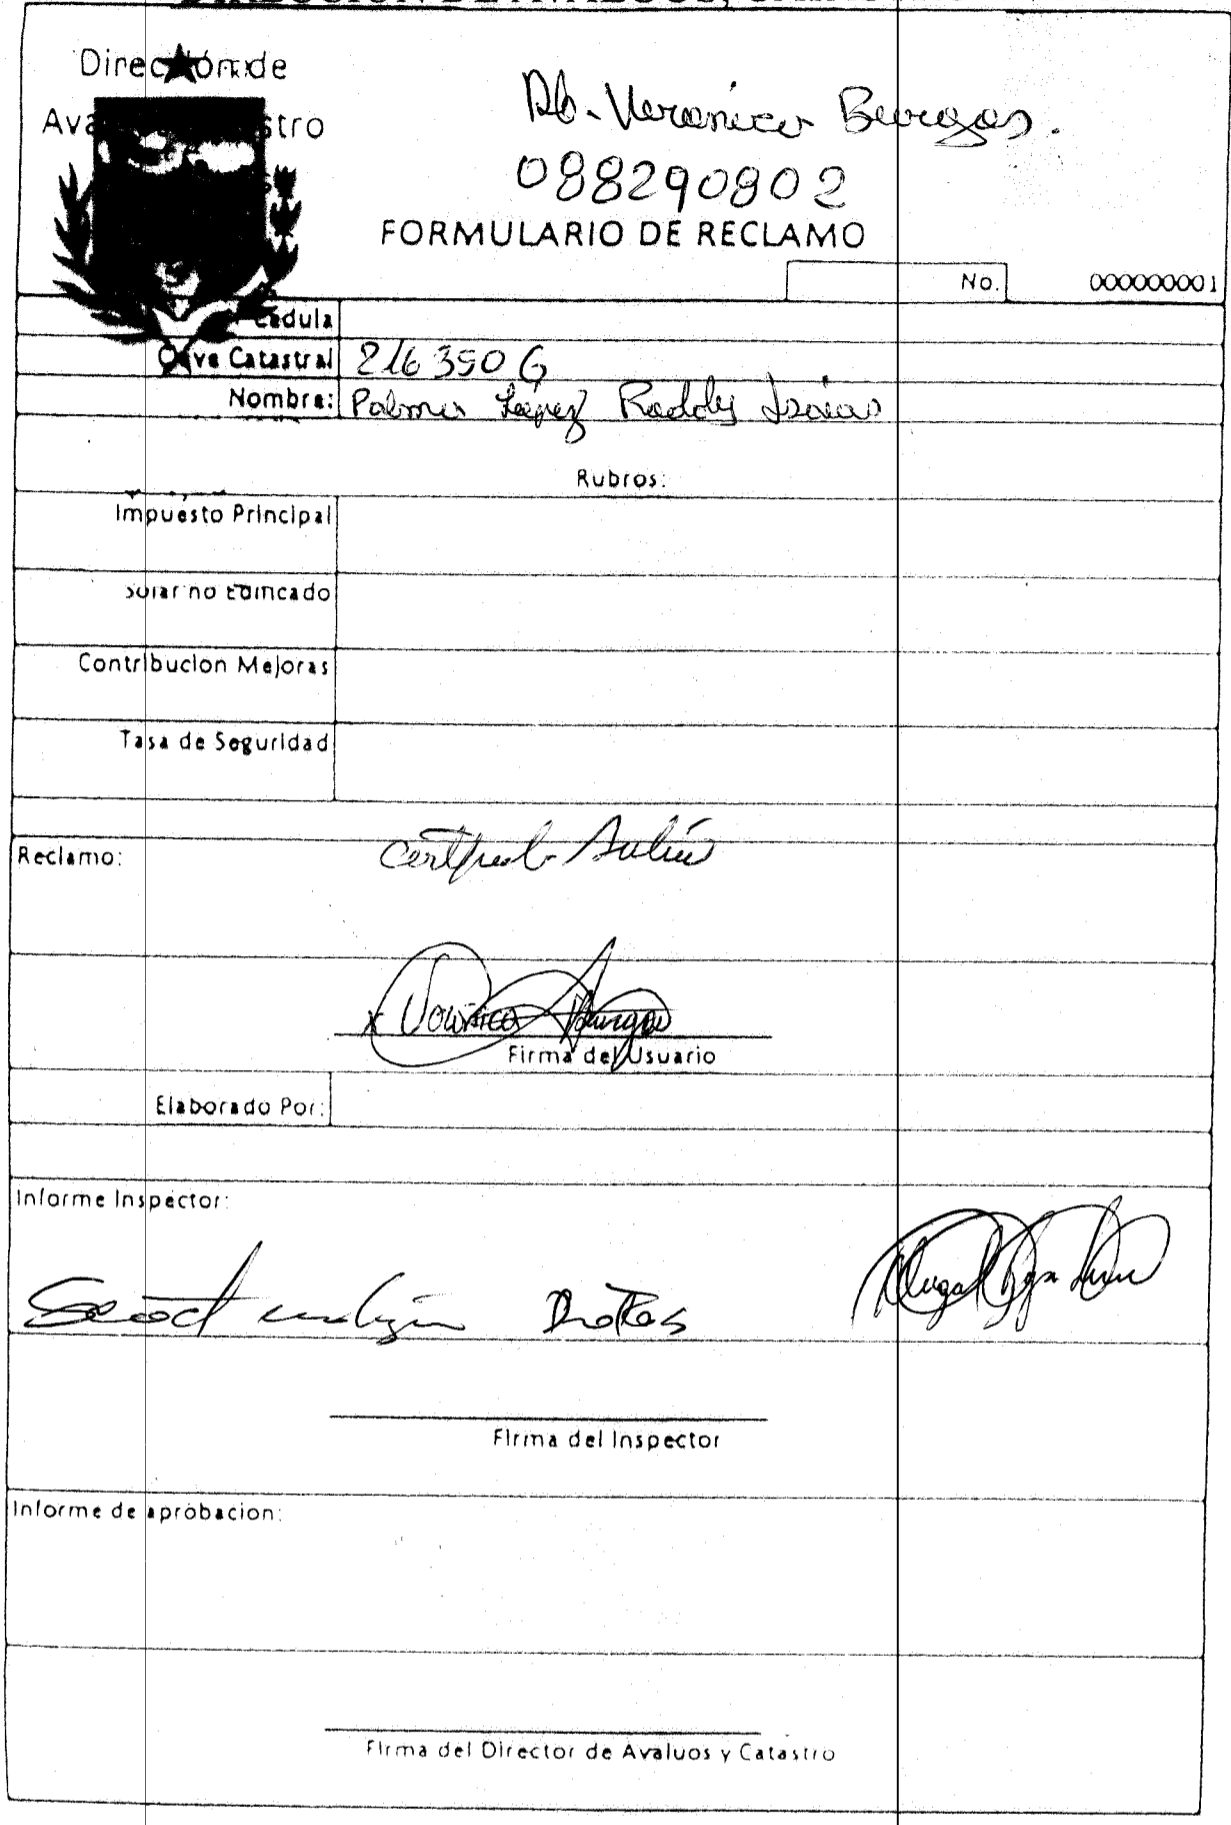 Dirección de
Ava stro
Ab. Veronica Burgos.
088290802
FORMULARIO DE RECLAMO
No. 000000001
Cedula
Clave Catastral 216350 G
Nombre: Palma López Roddy Isaias
Rubros:
Impuesto Principal
Solar no Edificado
Contribucion Mejoras
Tasa de Seguridad
Reclamo:
Veronica Burgos
Firma del Usuario
Elaborado Por:
Informe Inspector:
Firma del Inspector
Informe de aprobacion:
Firma del Director de Avaluos y Catastro